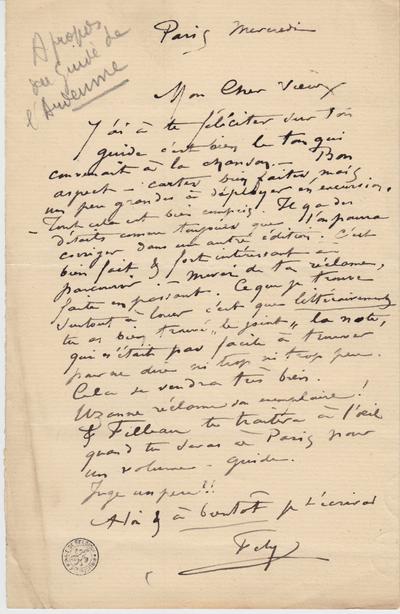 A propos
du Guide de
l'Ardenne
Paris Mercredi
Mon Cher Vieux
J'ai à te féliciter sur ton
guide c'est bien le ton qui
convenait à la chanson. — Bon
aspect — cartes bien faites mais
un peu grandes à déployer en excursion.
— Tout cela est bien compris. Il y a des
détails comme toujours que l'on pourra
corriger dans une autre édition. C'est
bien fait & fort intéressant à
parcourir. — Merci de ta réclame,
faite en passant. Ce que je trouve
surtout à louer c'est que littérairement
tu as bien trouvé "le joint", la note,
qui n'était pas facile à trouver
pour ne dire ni trop ni trop peu.
Cela se vendra très bien.
Uzanne réclame son exemplaire!
& Filleau te traitera à l'œil
quand tu seras à Paris pour
un volume - guide.
Juge un peu!!
à bientôt je t'écrirai
Fély